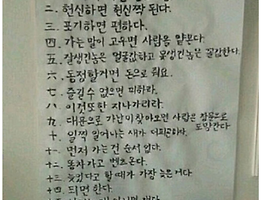 二. 헌신하면 헌신짝 된다.
三. 포기하면 편하다.
四. 가는말이 고우면 사람을 얕본다.
五. 잘생긴놈은 얼굴값하고 못생긴놈은 꼴값한다.
六. 동정할거면 돈으로 줘요.
七. 즐길 수 없으면 피하라.
八. 이것또한 지나가리라
九. 대문으로 가난이 찾아오면 사랑은 창문으로 도망간다
十. 일찍 일어나는 새가 더피곤하다.
十一. 먼저 가는건 순서 없다.
十二. 똥차가고 벤츠온다.
十三. 늦었다고 할 때가 가장 늦은거다
十四. 되면 한다.